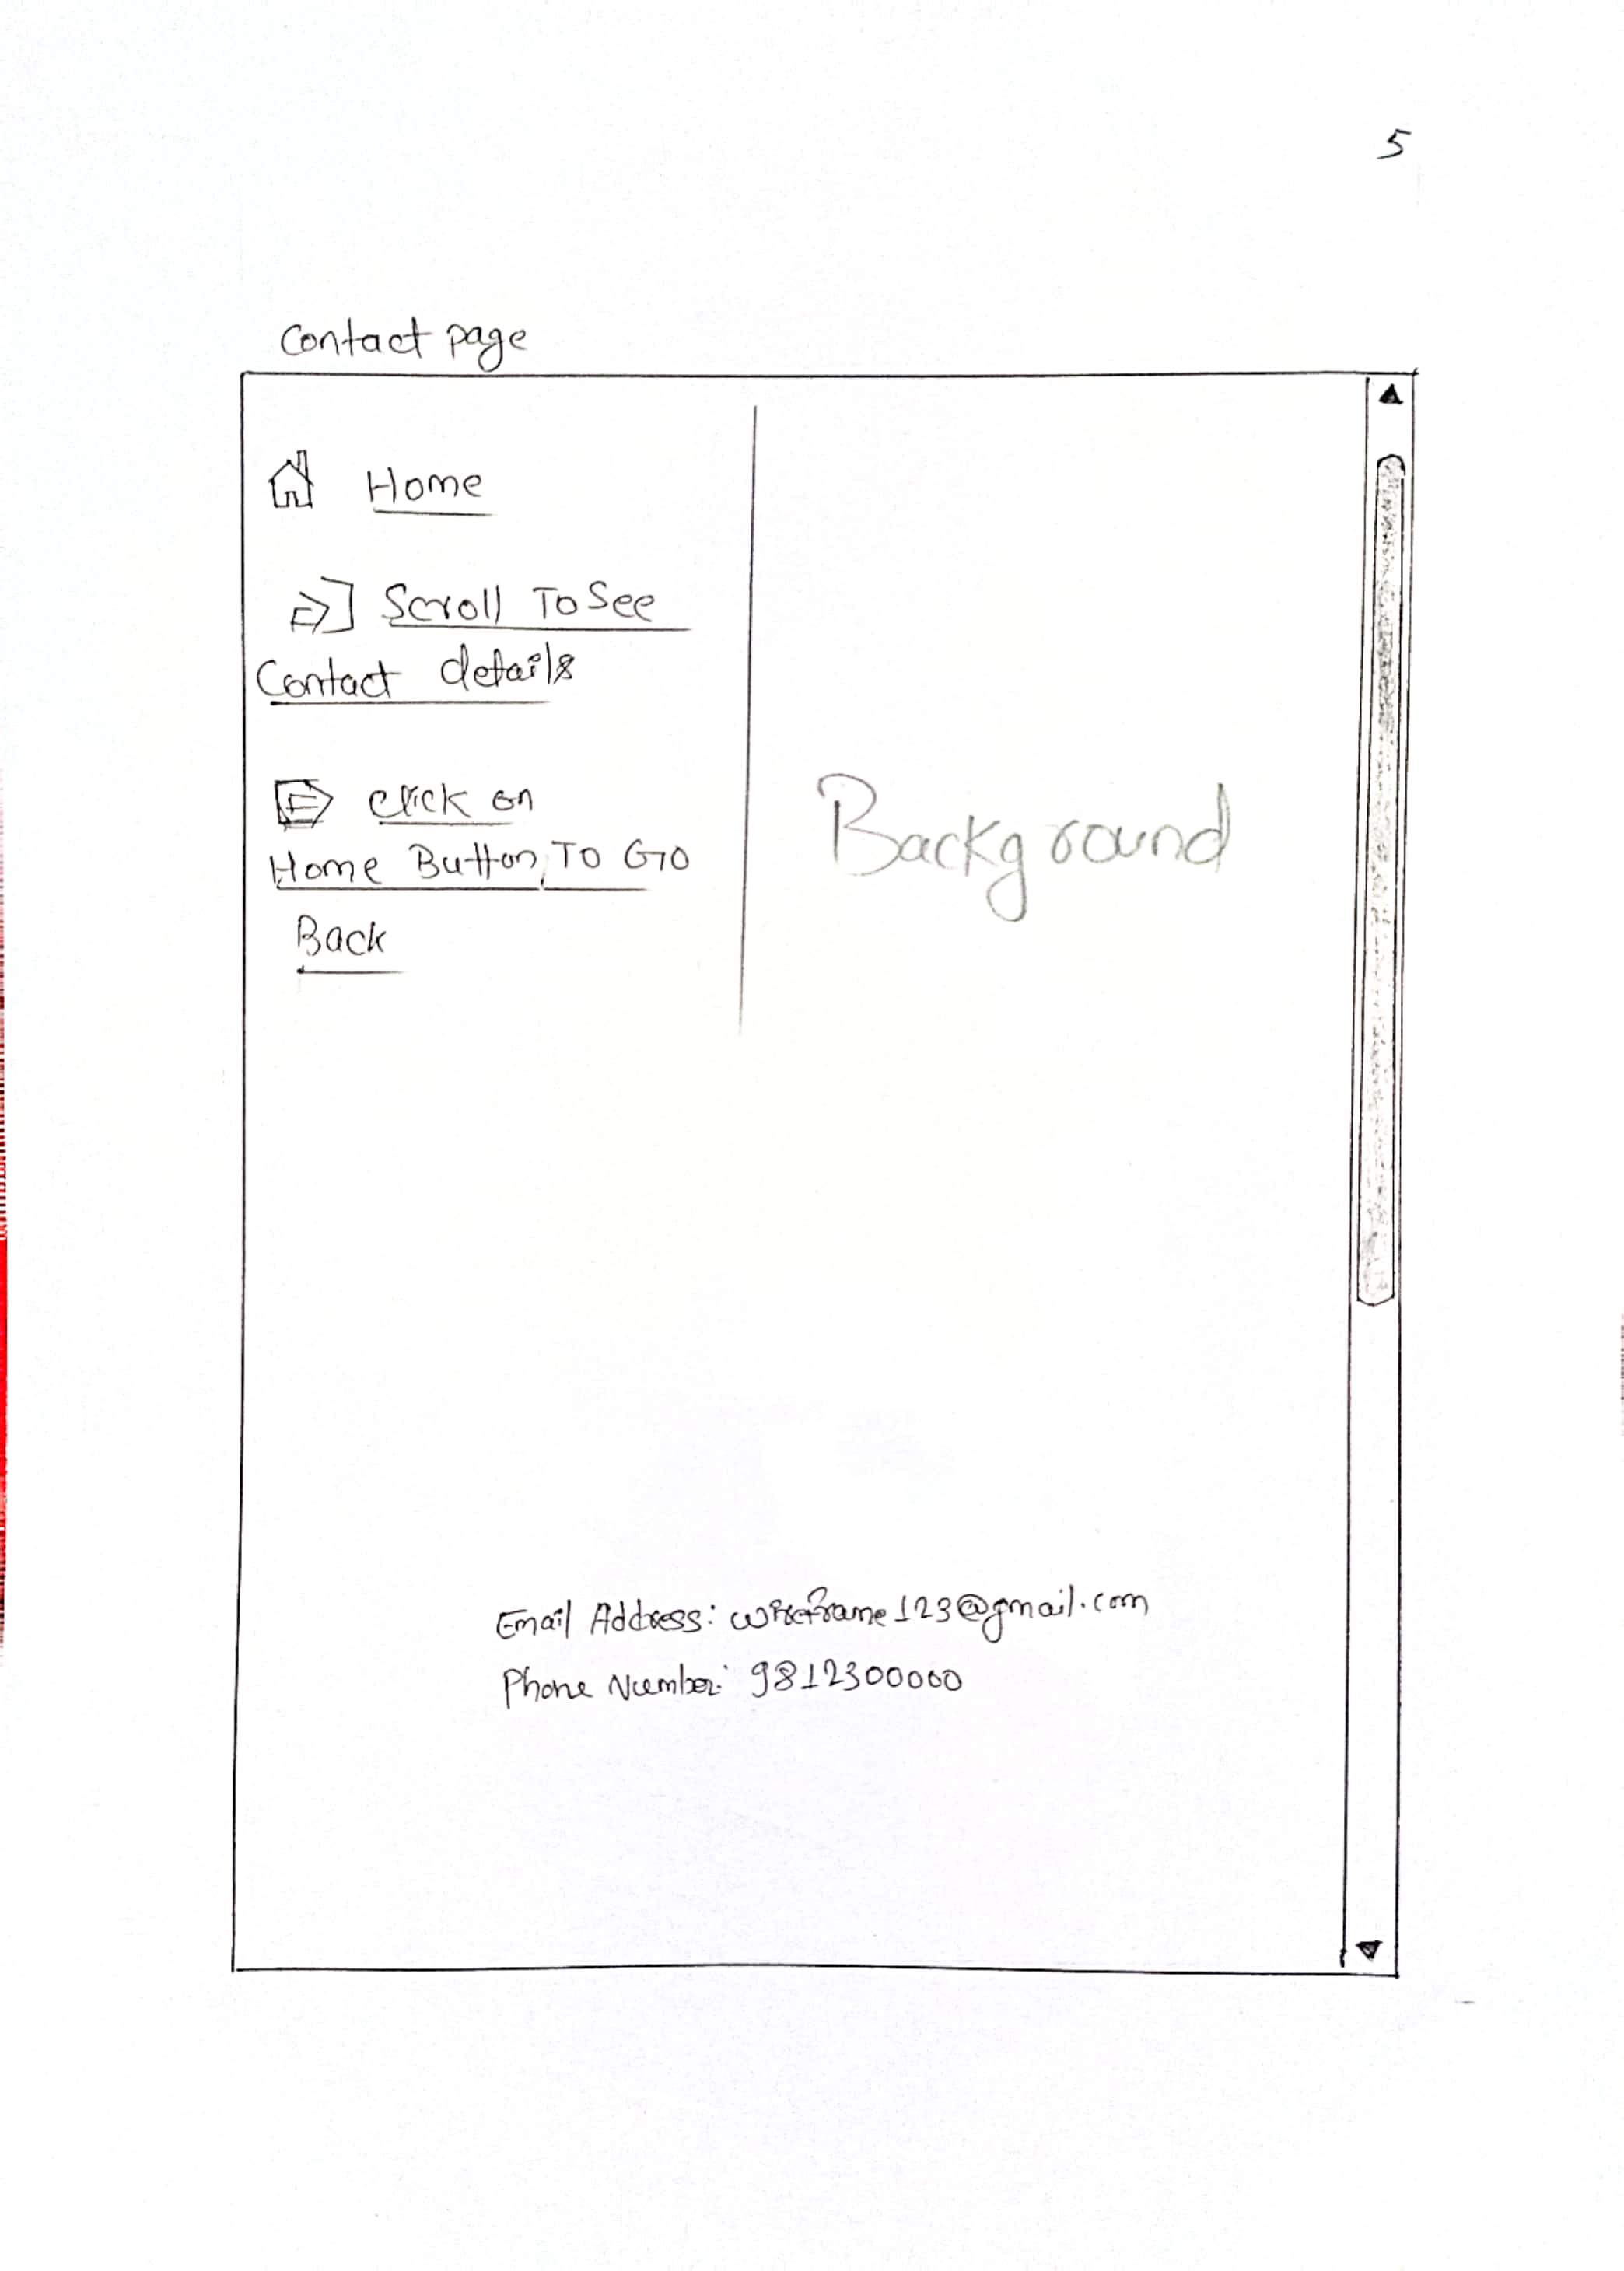 5
Contact page
Home
Scroll To See
Contact details
Click on
Home Button To Go
Back
Background
Email Address: wireframe123@gmail.com
Phone Number: 9812300000